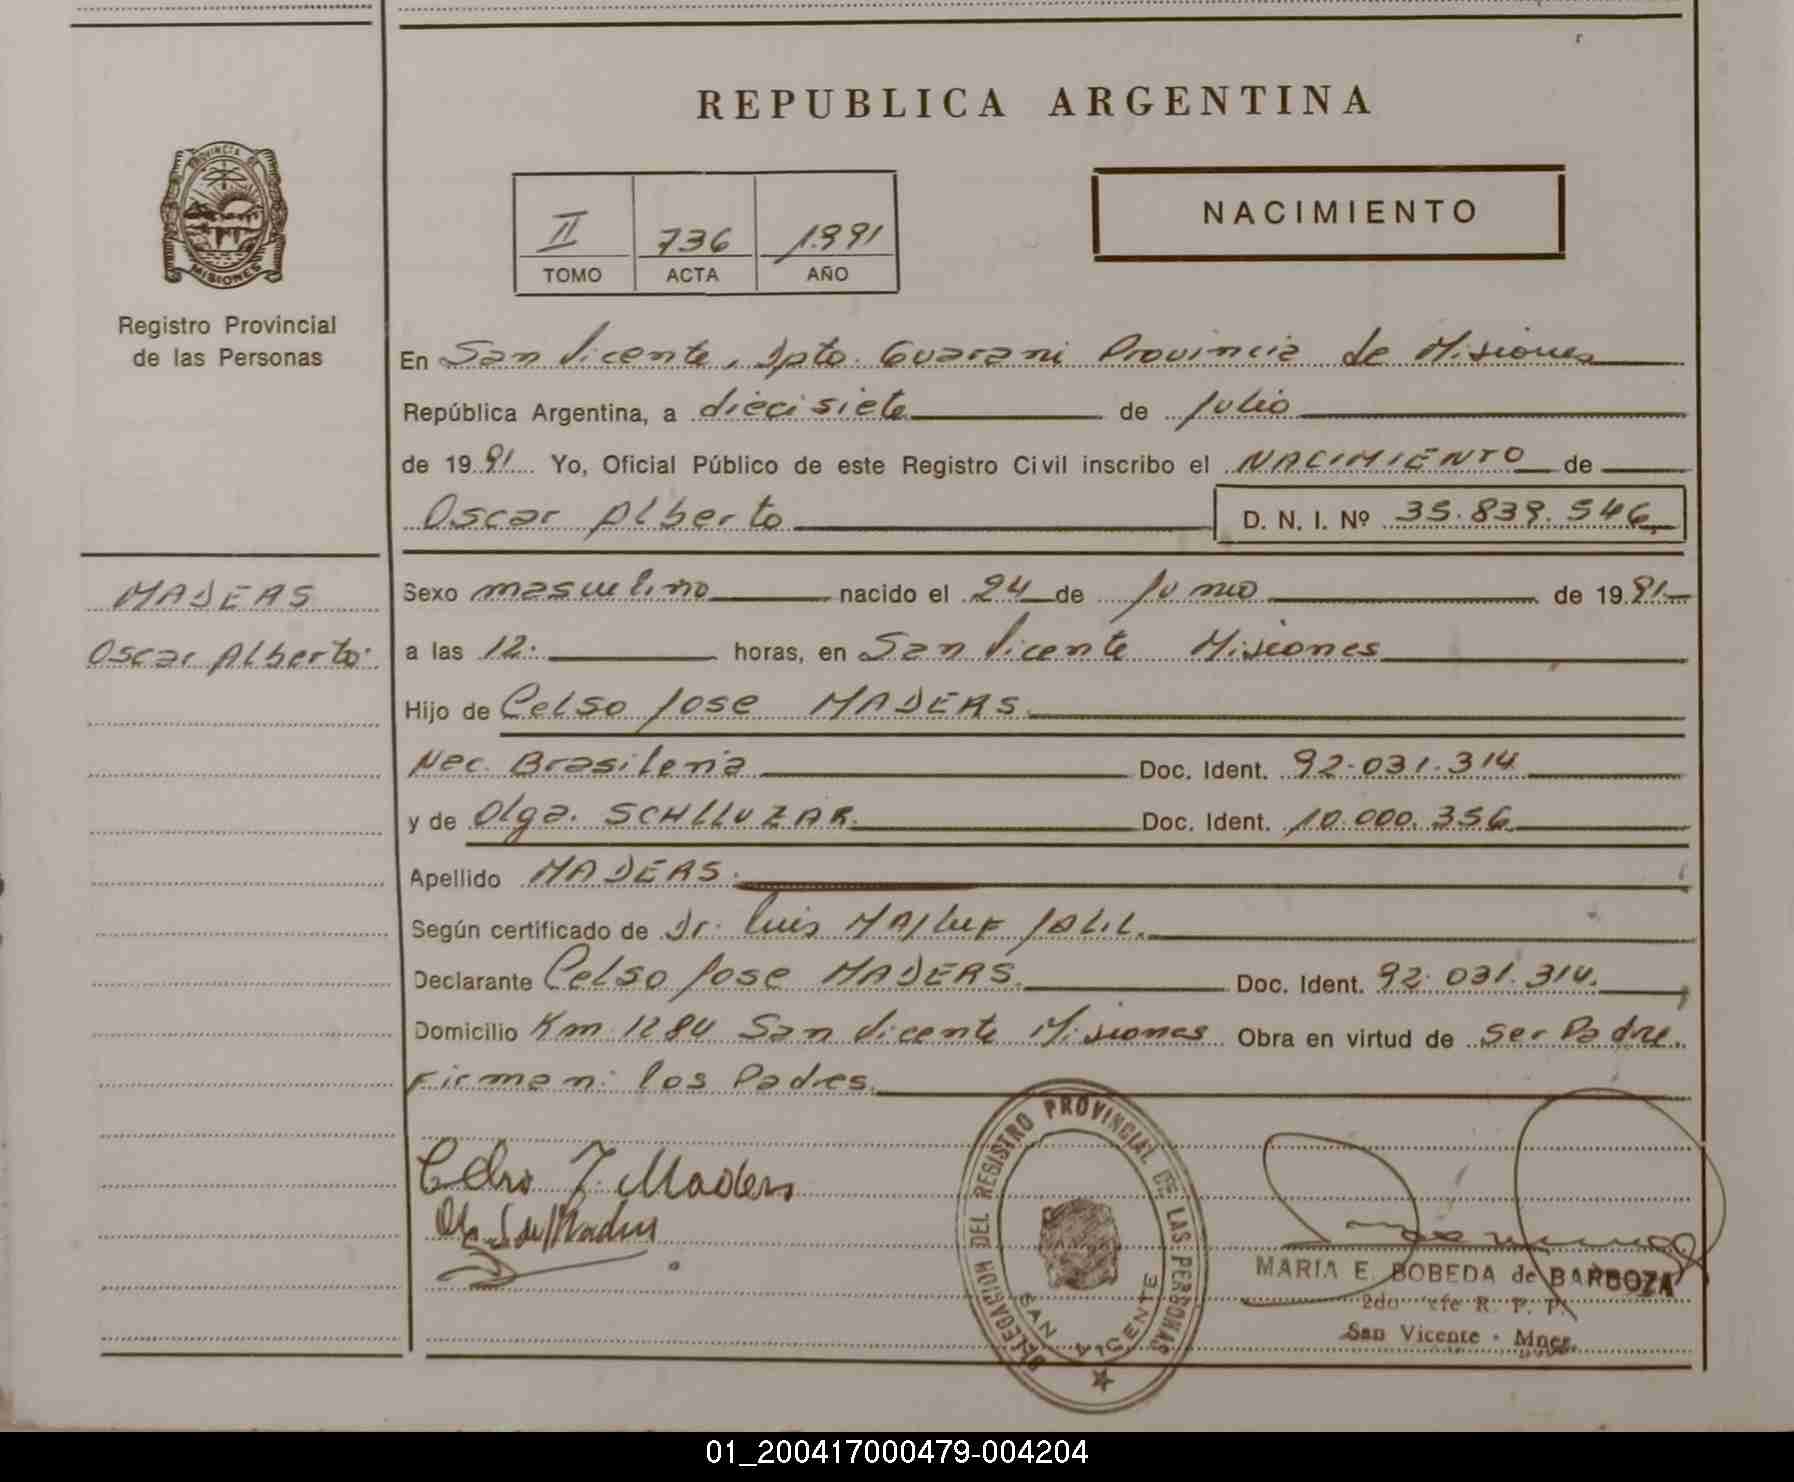 REPUBLICA ARGENTINA
PROVINCIA DE
MISIONES
Registro Provincial
de las Personas
II 736 1.991
TOMO ACTA AÑO
NACIMIENTO
En San Vicente, Dpto. Guarani Provincia de Misiones
República Argentina, a diecisiete de Julio
de 1991 Yo, Oficial Público de este Registro Civil inscribo el NACIMIENTO de
Oscar Alberto D. N. I. Nº 35.839.546
MADERS
Oscar Alberto.
Sexo masculino nacido el 24 de Junio de 1991
a las 12. horas, en San Vicente Misiones
Hijo de Celso Jose MADERS.
Nac. Brasileria Doc. Ident. 92.031.314
y de Olga. SCHLLUZAR. Doc. Ident. 10.000.356
Apellido MADERS.
Según certificado de Dr. Luis MAJLUF JALIL.
Declarante Celso Jose MADERS. Doc. Ident. 92.031.314.
Domicilio Km 1284 San Vicente Misiones Obra en virtud de ser Padre.
Firman: los Padres.
Celso J. Maders
S de Maders
DELEGACION DEL REGISTRO PROVINCIAL DE LAS PERSONAS
SAN VICENTE
MARIA E. BOBEDA de BARBOZA
2do Jefe R. P. P.
San Vicente - Mnes.
01_200417000479-004204